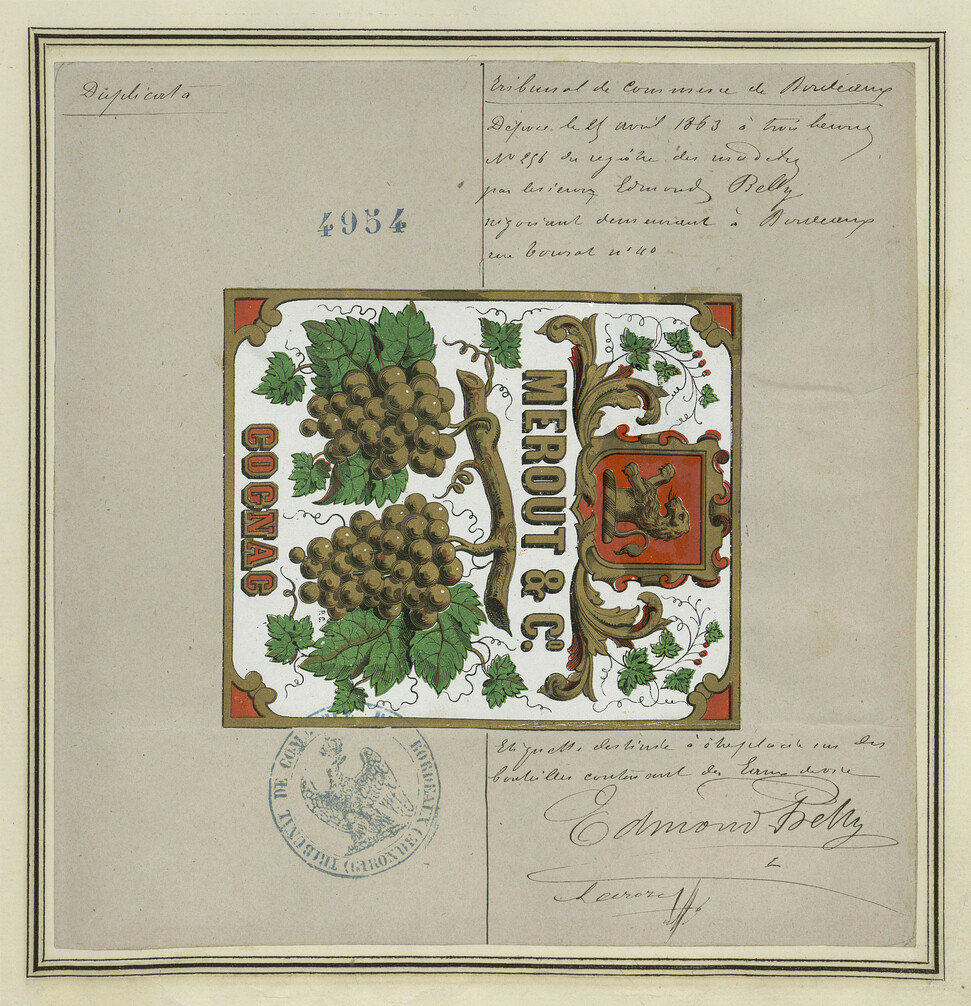 Duplicata
Tribunal de commerce de Bordeaux
Déposé le 25 avril 1863 à trois heures
No 256 du registre des modèles
par le sieur Edmond Belly
négociant demeurant à Bordeaux
rue no 40
4954
MEROUT & Co.
COGNAC
TRIBUNAL DE COM BORDEAUX (GIRONDE)
Etiquette destinée à être placée sur des
bouteilles contenant de Eau de vie
Edmond Belly